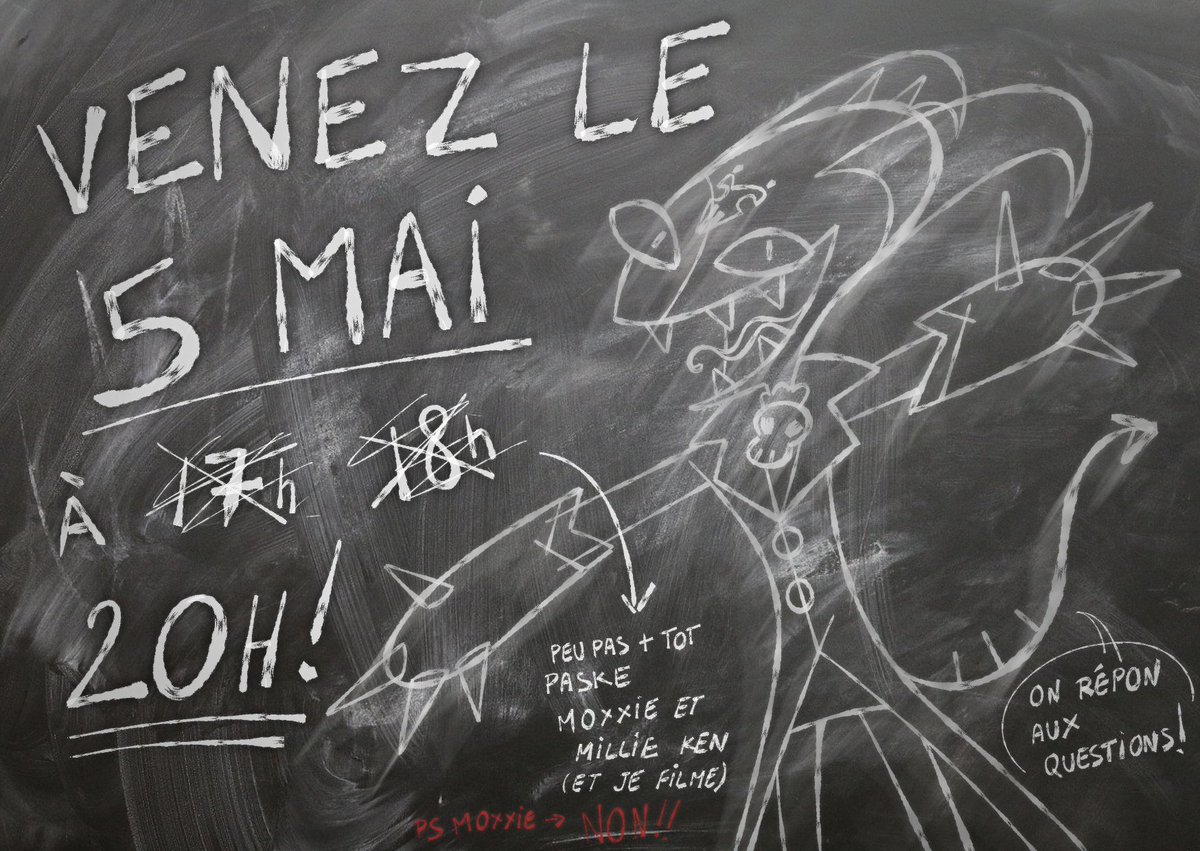 VENEZ LE
5 MAI
À 17h 18h
20H!
PEU PAS + TOT
PASKE
MOXXIE ET
MILLIE KEN
(ET JE FILME)
PS MOXXIE → NON!!
ON RÉPON
AUX
QUESTIONS!